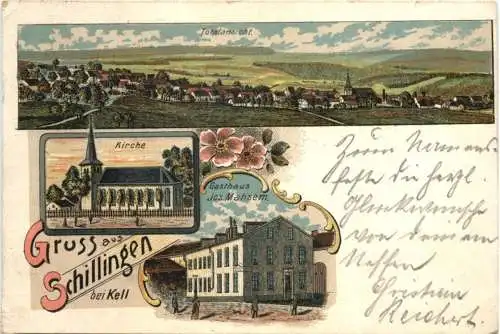 Totalansicht.
Kirche
Gasthaus
Jos. Mansem.
Gruss aus
Schillingen
bei Kell
Zum Namens-
feste die herzl.
Glückwünsche
von dem
Neffen
Christian
Reichert.